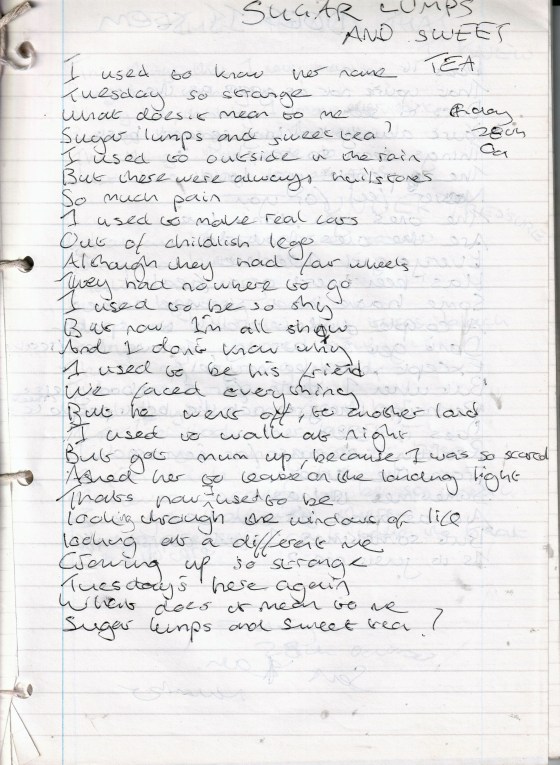 SUGAR LUMPS
AND SWEET
TEA
I used to know her name
Tuesday so strange
What does it mean to me
Friday
Sugar lumps and sweet tea?
20th
Oct
I used to outside in the rain
But there were always hailstones
So much pain
I used to make real cars
Out of childish lego
Although they had four wheels
They had nowhere to go
I used to be so shy
But now I'm all show
And I dont know why
I used to be his friend
We faced everything
But he went off, to another land
I used to walk at night
But got mum up, because I was so scared
Asked her to leave on the landing light
Thats how I used to be
Looking through the windows of life
looking at a different me
Growing up so strange
Tuesday's here again
What does it mean to me
Sugar lumps and sweet tea?